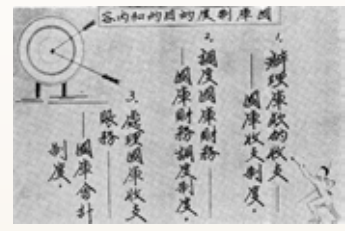 國庫制度的目的和內容
1、辦理庫款的收支
——國庫收支制度．
2、調度國庫財務
——國庫財務調度制度．
3、處理國庫收支
賬務——
——國庫會計
制度．